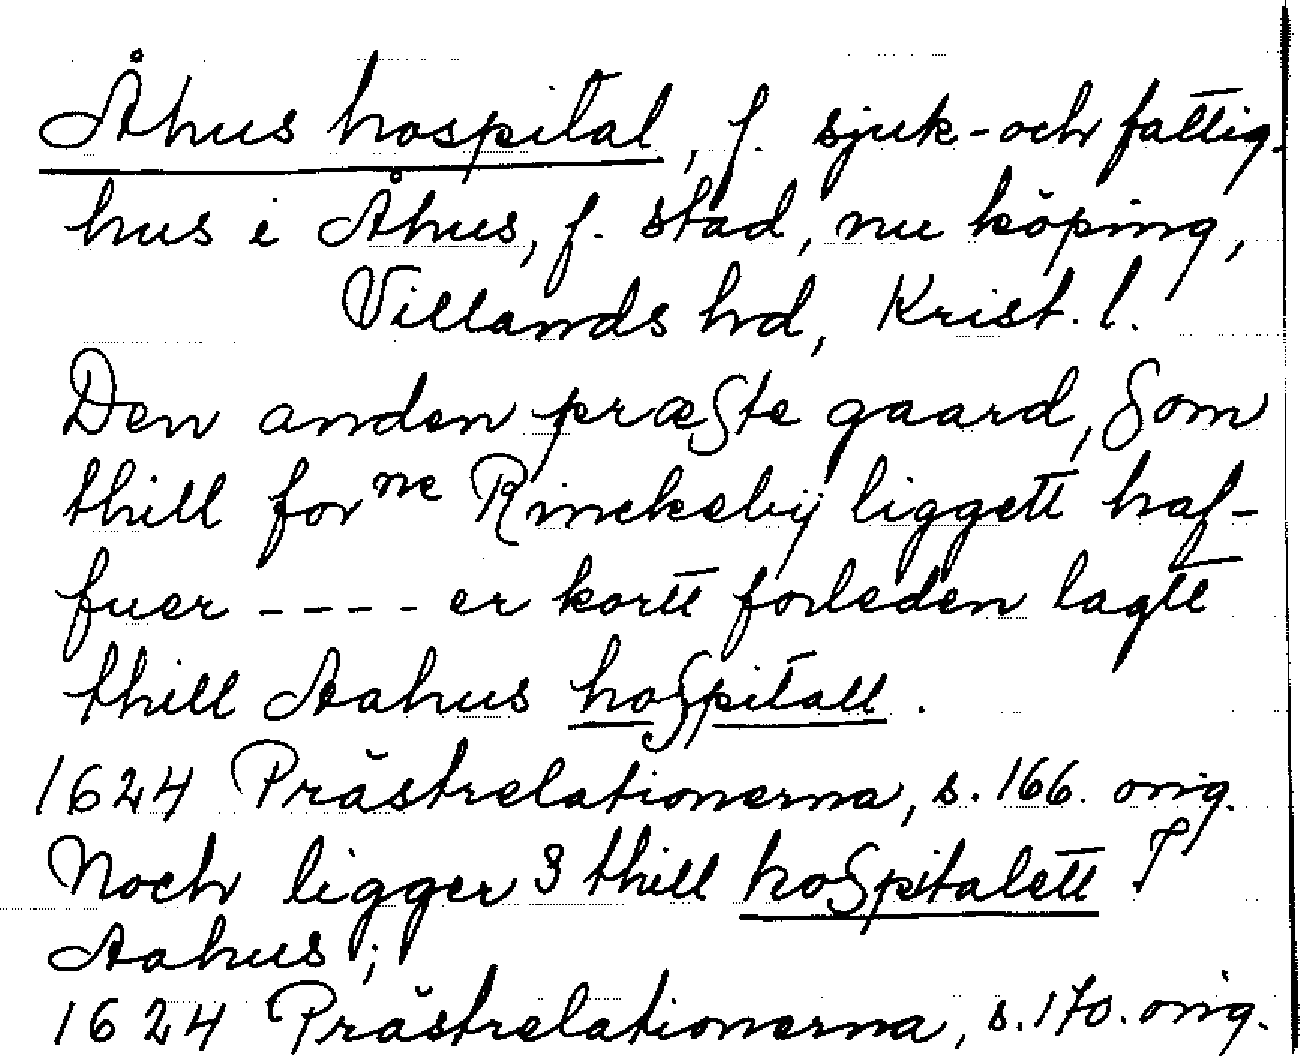 Åhus hospital, f. sjuk- och fattig-
hus i Åhus, f. stad, nu köping,
Villands hd, Krist. l.
Den anden præste gaard, som
thill forne Rinckebÿ liggett haf-
fuer ---- er kortt forleden lagtt
thill Aahus hospitall.
1624 Prästrelationerna, s. 166. orig.
Noch ligger 3 thill hospitalett I
Aahus;
1624 Prästrelationerna, s. 170. orig.